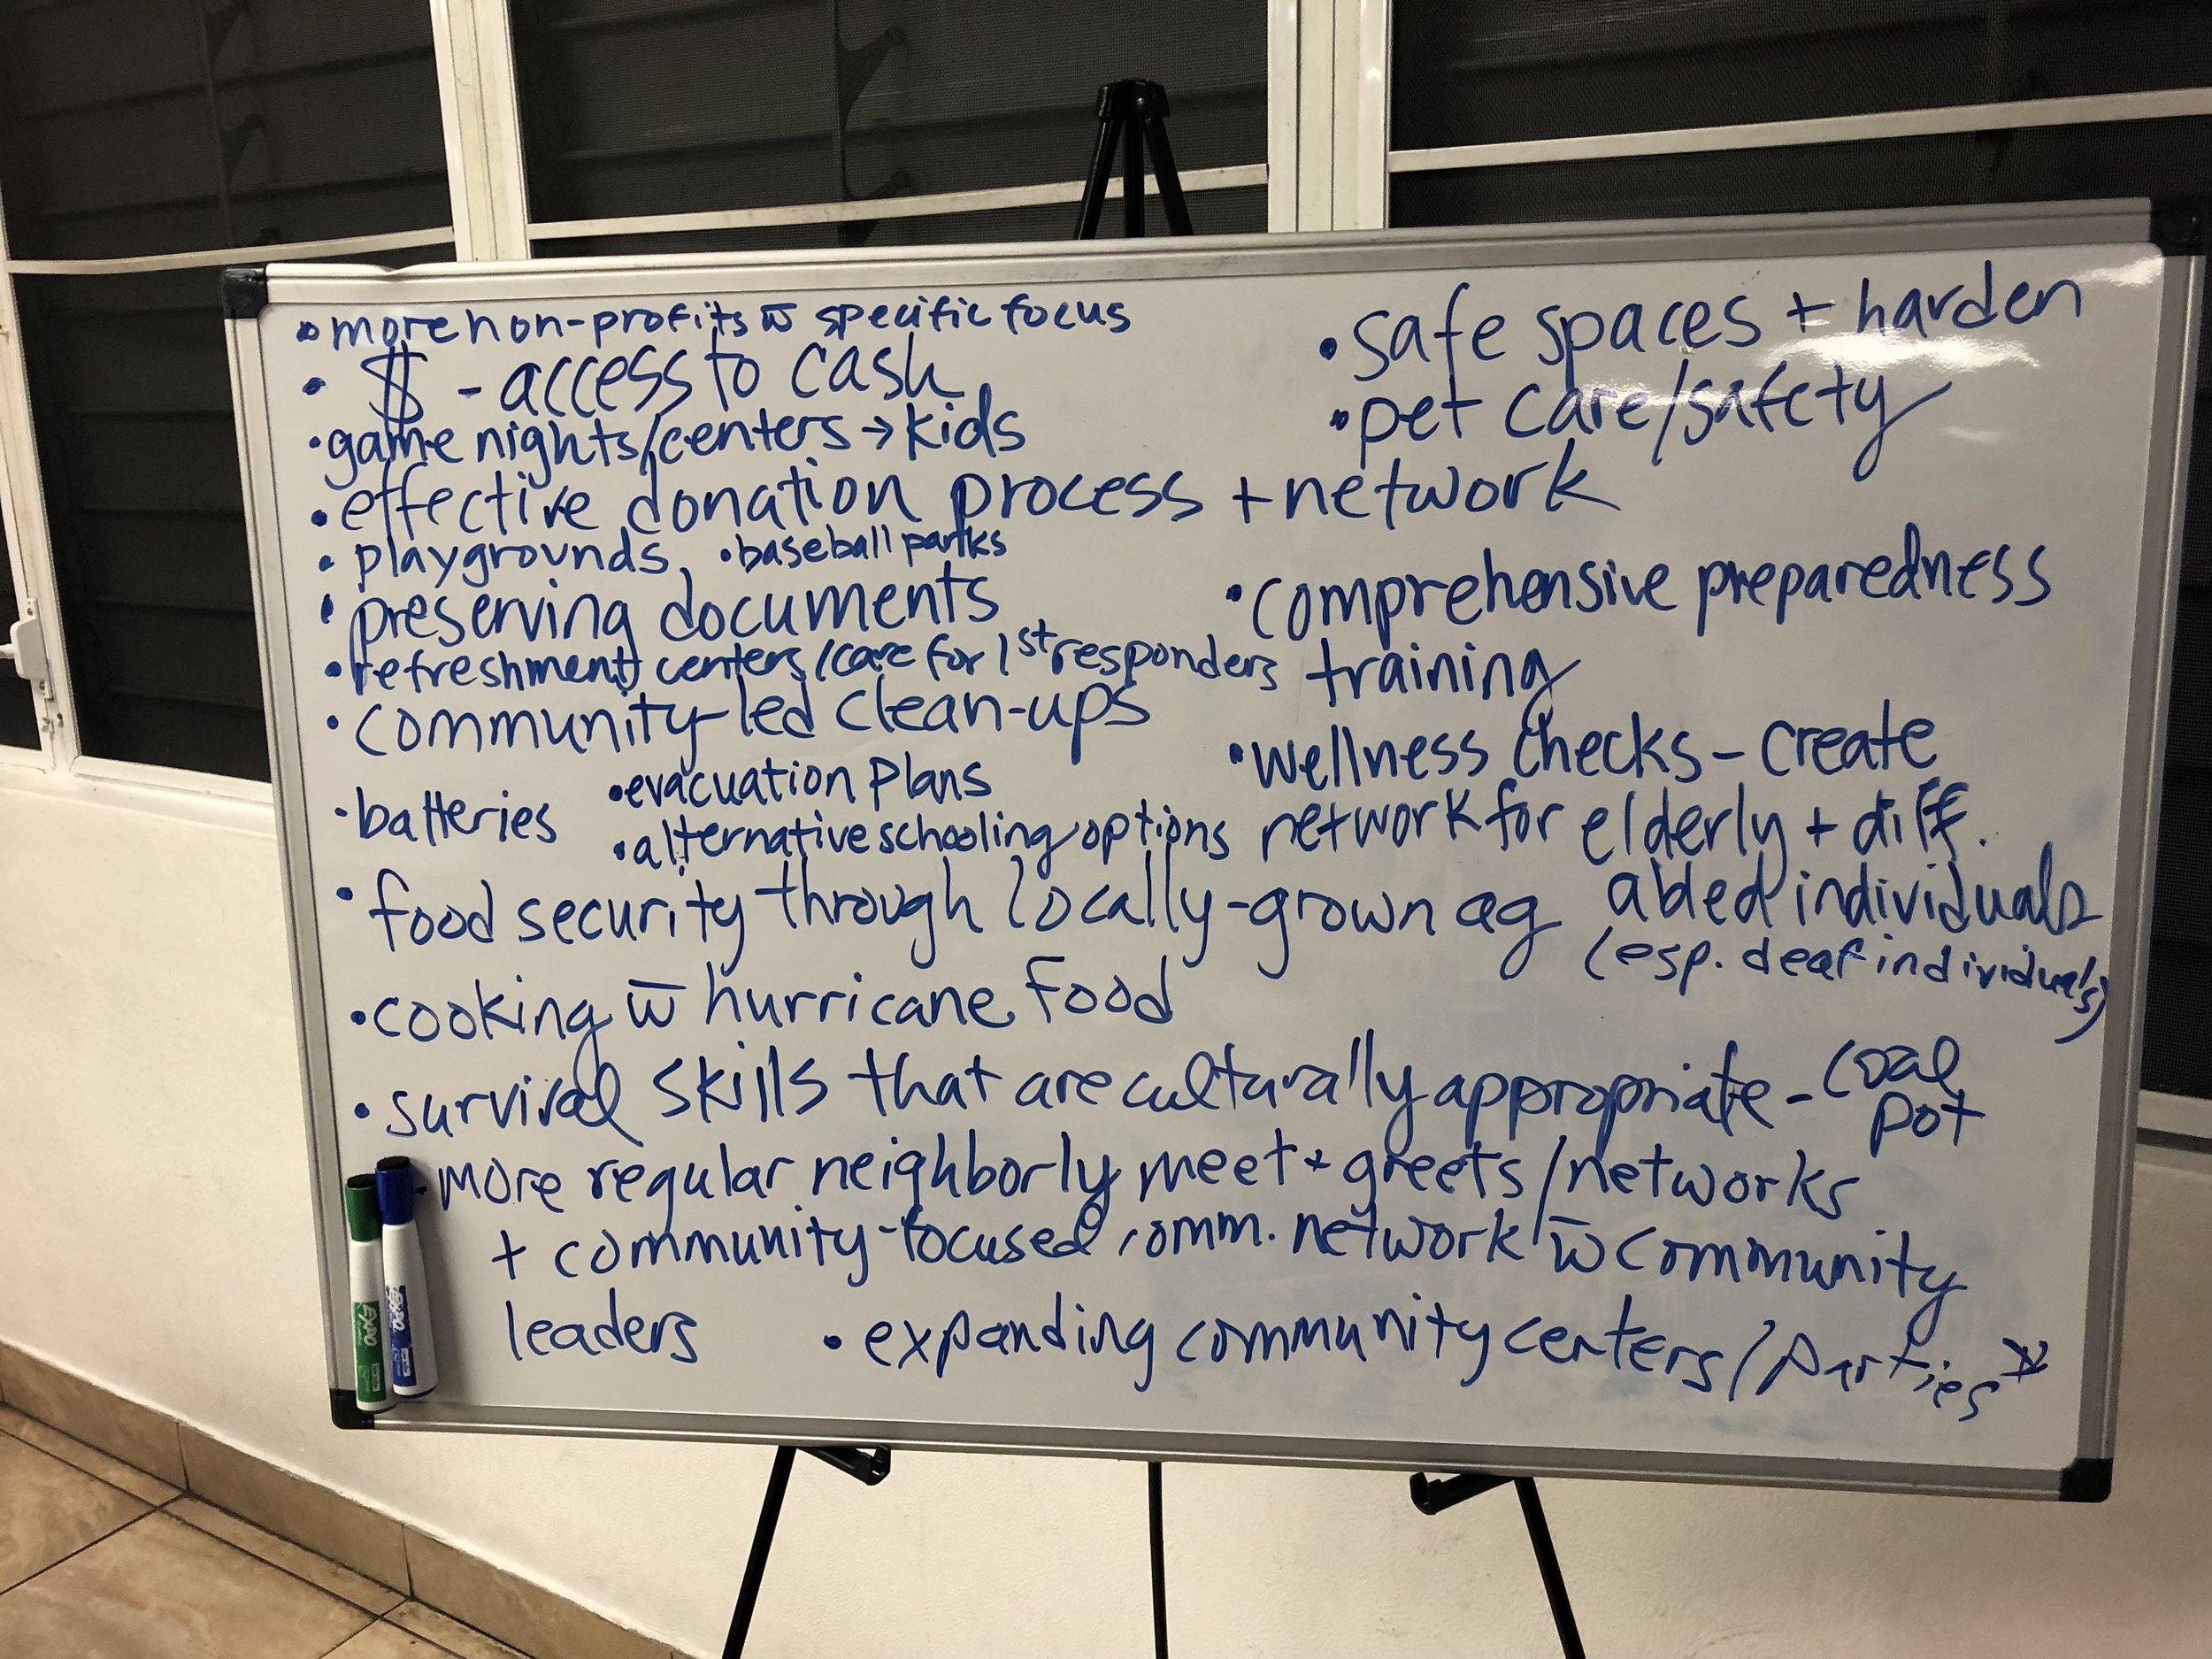 • more non-profits w̄ specific focus
• $ - access to cash
• game nights/centers → kids
• safe spaces + harden
• pet care/safety
• effective donation process + network
• playgrounds • baseball parks
• preserving documents
• refreshment centers/care for 1st responders
• community-led clean-ups
• comprehensive preparedness
training
• batteries • evacuation plans
• alternative schooling options
• wellness checks - create
network for elderly + diff.
abled individuals
(esp. deaf individuals)
• food security through locally-grown ag
• cooking w̄ hurricane food
• survival skills that are culturally appropriate - coal
pot
• more regular neighborly meet + greets/networks
+ community-focused comm. network w̄ community
leaders • expanding community centers/parties
EXPO
EXPO